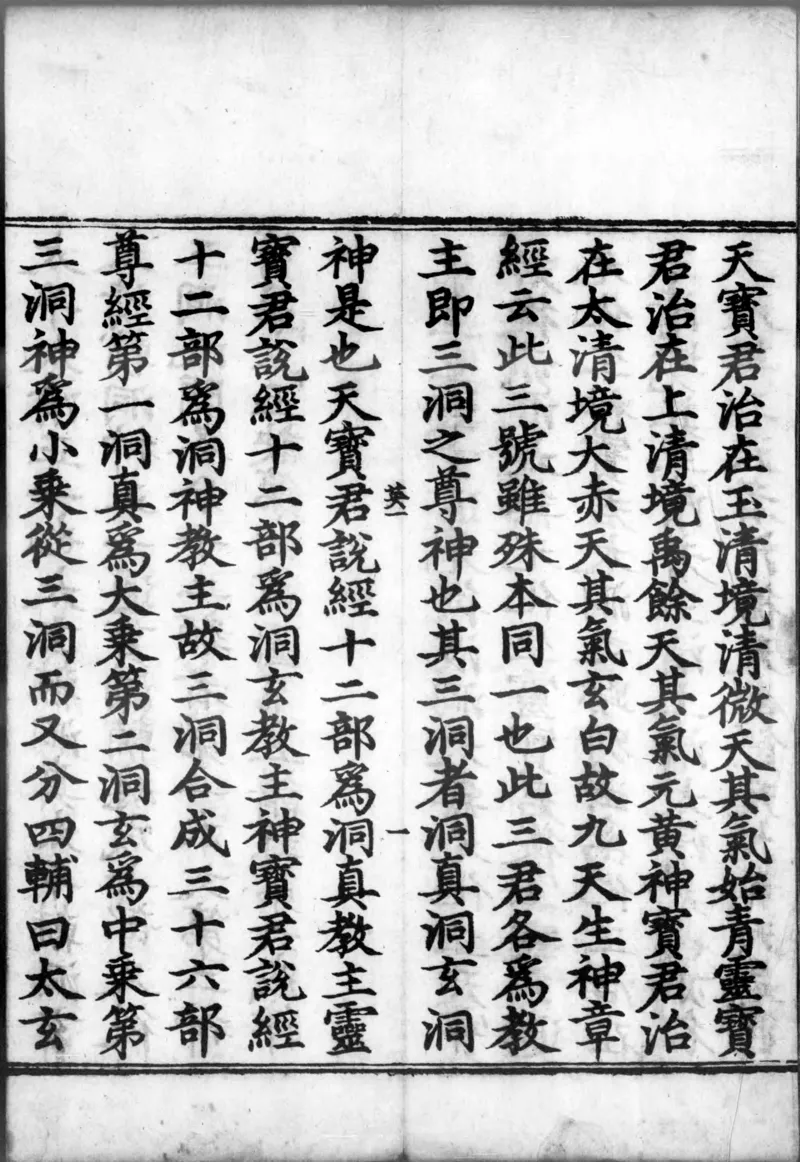 天寶君治在玉清境清微天其氣始青靈寶
君治在上清境禹餘天其氣元黃神寶君治
在太清境大赤天其氣玄白故九天生神章
經云此三號雖殊本同一也此三君各爲教
主即三洞之尊神也其三洞者洞真洞玄洞
英一 一
神是也天寶君說經十二部爲洞真教主靈
寶君說經十二部爲洞玄教主神寶君說經
十二部爲洞神教主故三洞合成三十六部
尊經第一洞真爲大乘第二洞玄爲中乘第
三洞神爲小乘從三洞而又分四輔曰太玄